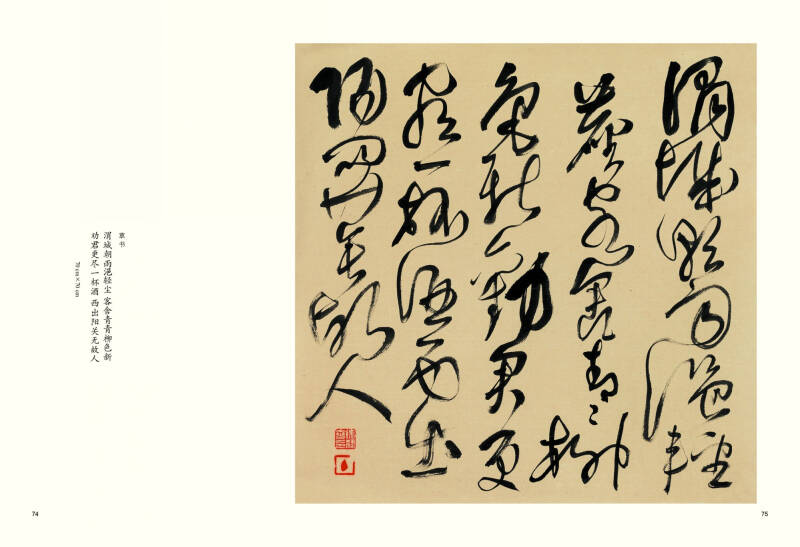 渭城朝雨浥輕
塵客舍青々柳
色新勸君更
盡一杯酒西出
陽關無故人
草书
渭城朝雨浥轻尘 客舍青青柳色新
劝君更尽一杯酒 西出阳关无故人
70 cm×70 cm
74
75